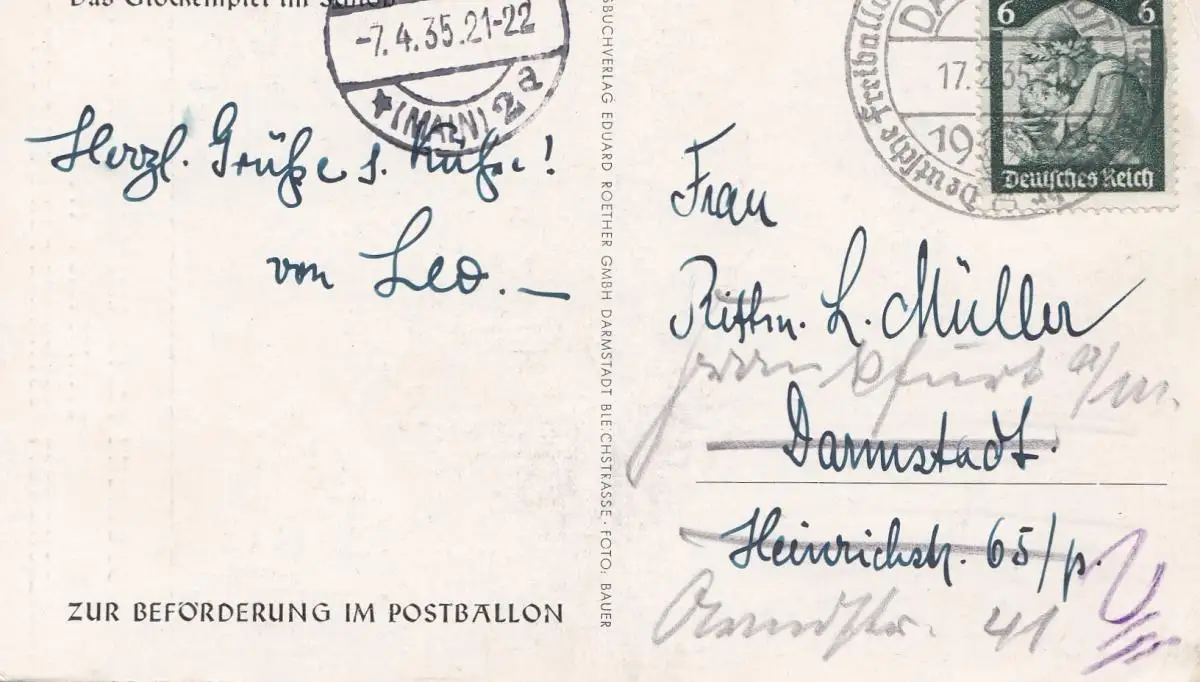 Das Glockenspiel im Schloß
-7.4.35.21-22
★(MAIN) 2a
Herzl. Grüße s. Küße!
von Leo.—
ZUR BEFÖRDERUNG IM POSTBALLON
SBUCHVERLAG EDUARD ROETHER GMBH DARMSTADT BLEICHSTRASSE · FOTO: BAUER
Deutsche Freiballo
17.2.35
19
6 6
Deutsches Reich
Frau
Rittm. L. Müller
Frankfurt a/M.
Darmstadt.
Heinrichstr. 65/p.
Arndtstr. 41